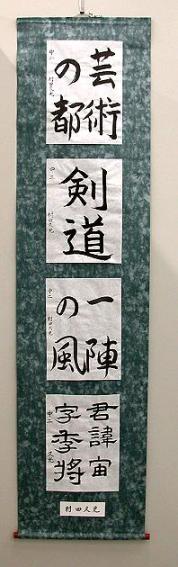 芸術
の都
剣道
一陣
の風
君諱宙
字季将
村田久光